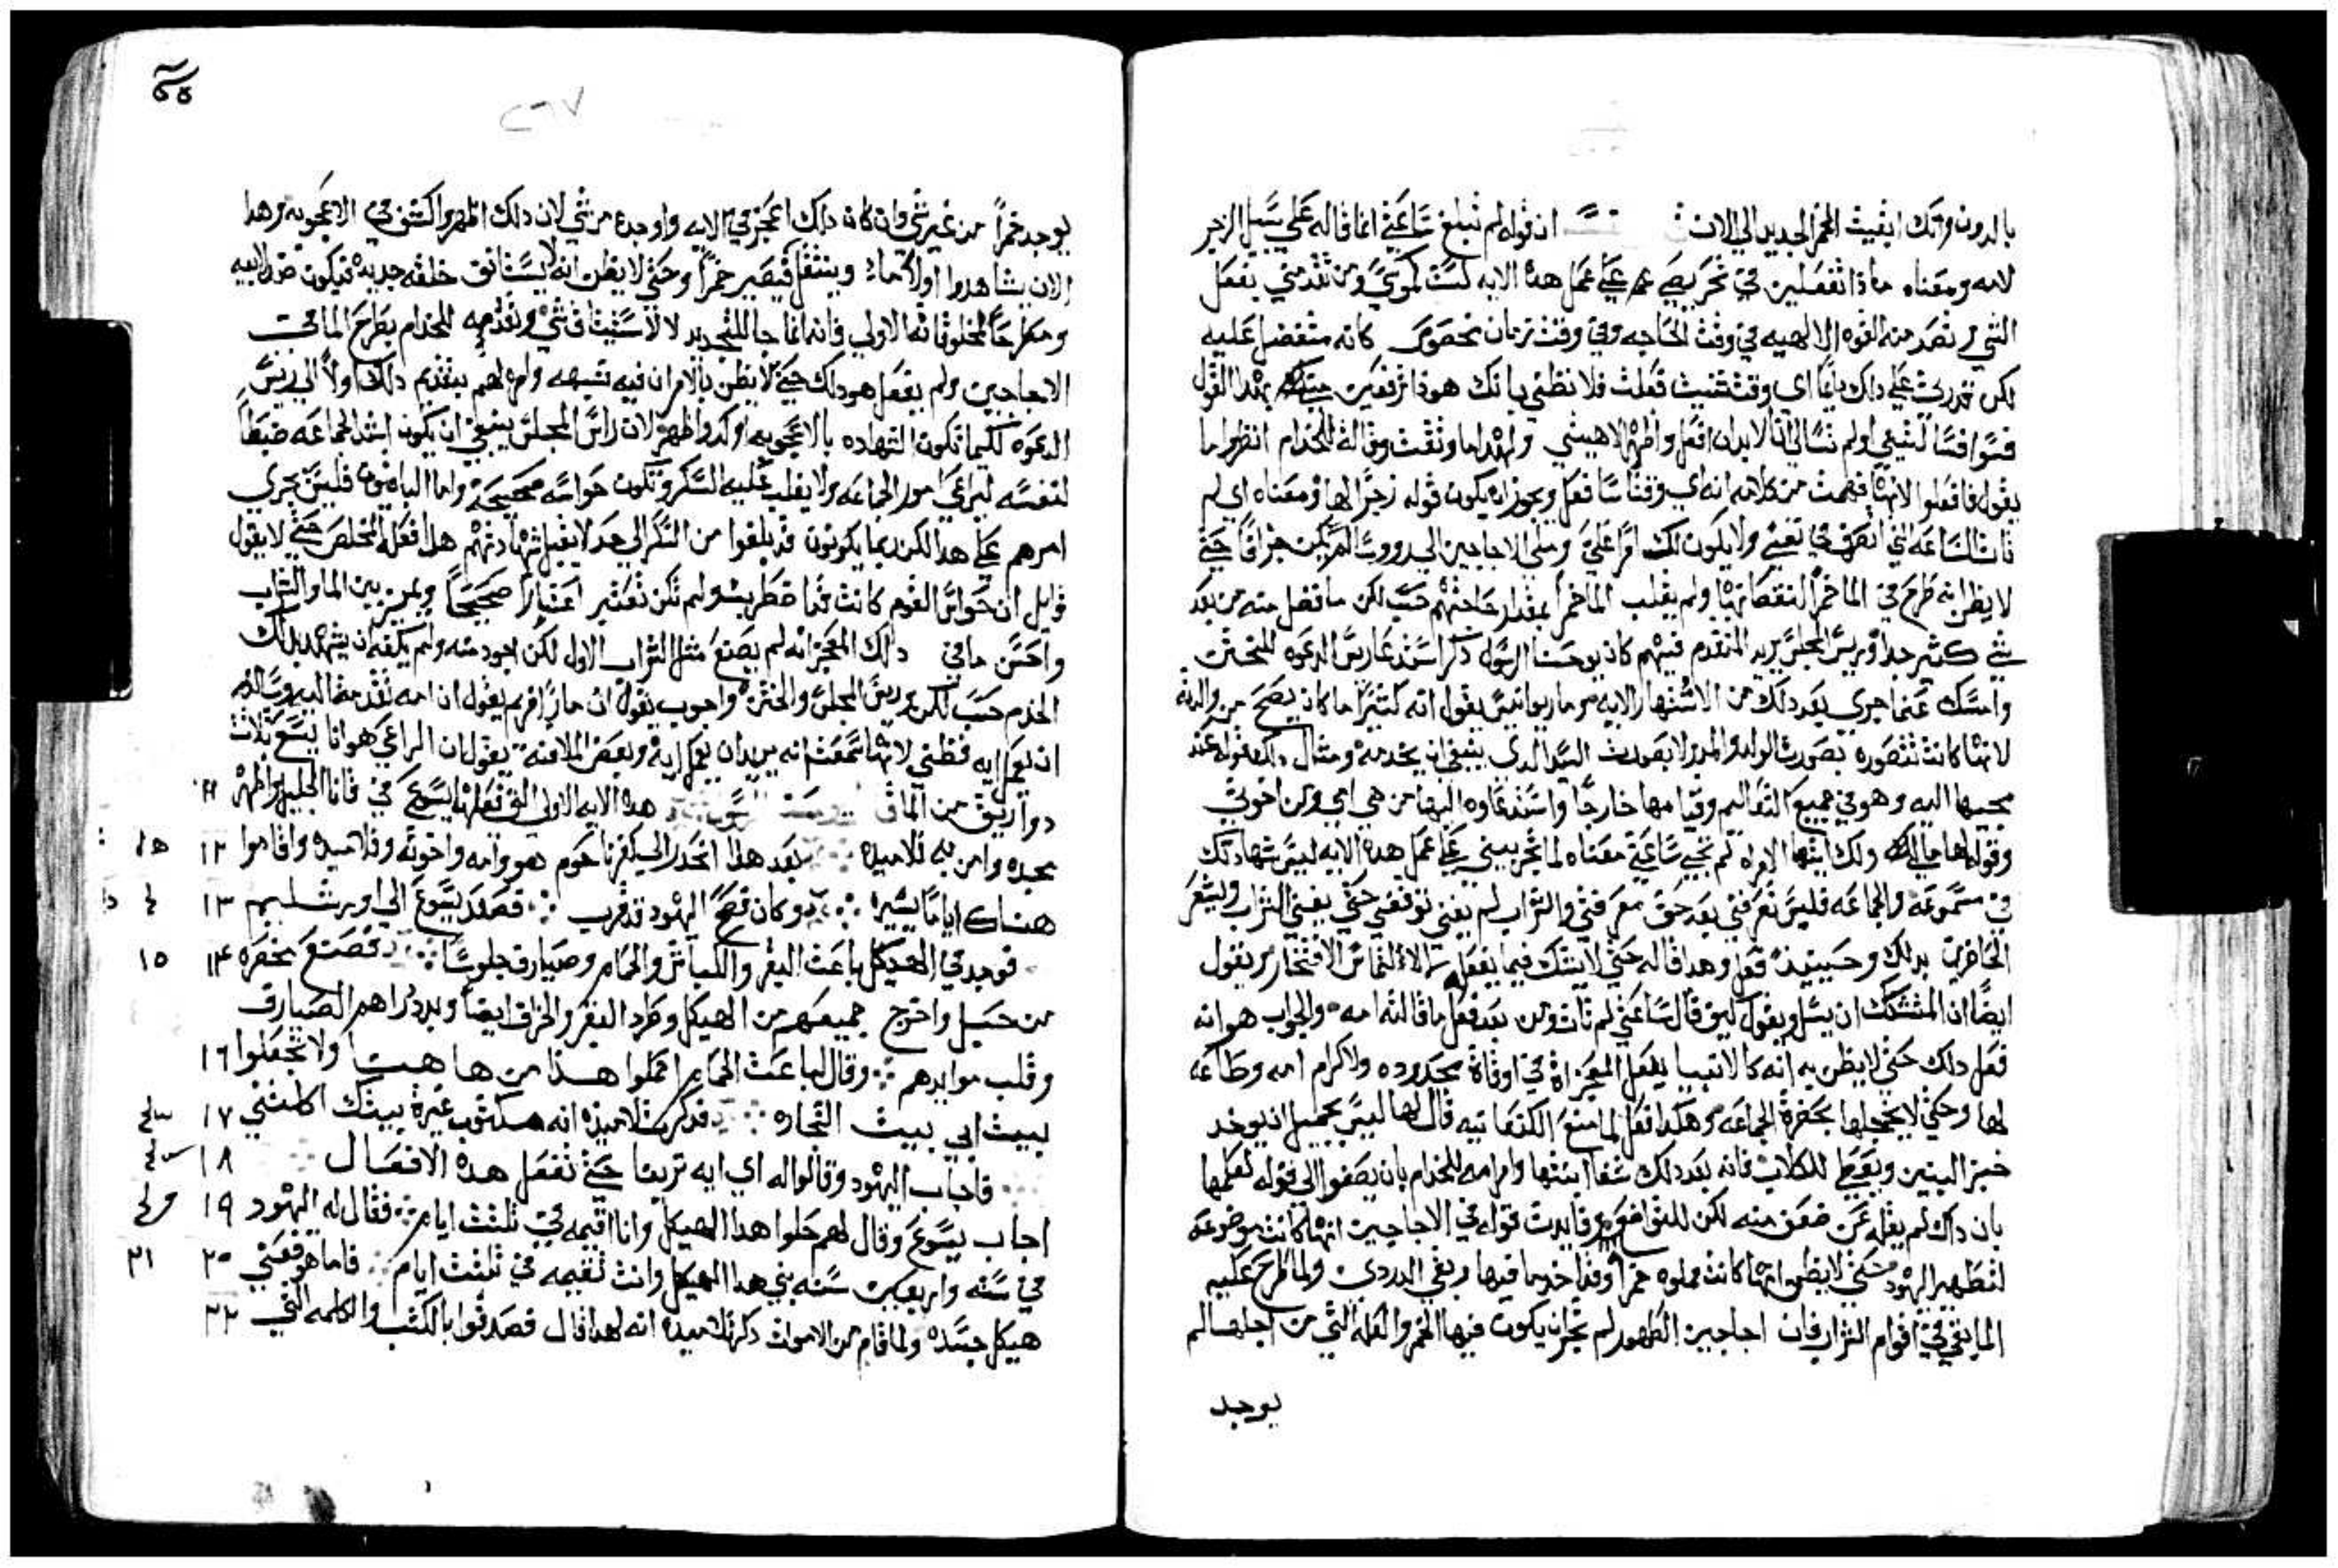 بالدون وانك ابقيت الخمر الجديد الي الان ان قوله لم تبلغ ساعتي انما قاله علي سبيل الزجر
لامه ومعناه ماذا تفعلين في تحريضي علي عمل هذه الايه لست كموسي ومن تقدمني يفعل
القوه الالاهيه في وقت الحاجه وفي وقت زمان مخصوص كانه متفضل عليه
لكن قدرتي علي ذلك باي وقت شيت فعلت فلا تظني بانك هوذا ترفعين بهذا القول
ولم تسالي انا لابد ان افعل واظهر لاهيتي ولهذا ما وثقت وقالت للخدام انظروا ما
يقول فافعلوا لانها فهمت من كلامه انه اي وقتا شا فعل ويجوز ان يكون قوله زجرا لها ومعناه اي لم
تات الساعه التي اتصرف تحتي ولا يكون لك امرا علي وملي الاجاجين الي لم يكن جزافا حتي
لا يظن انه طرح في الما خمرا لنقصانها ولم يقلب الما خمرا بمقدار حاجتهم حسب لكن ما فضل منه من بعد
شي كثير جدا وريس المجلس يريد المتقدم فيهم كان يوحنا الرسول ذكر استدعا ريس الدعوه للختن
وامسك عما جري بعد ذلك من الاشتهار الايه ومار يوانيس يقول انه كثيرا ما كان يصح من والدته
لانها كانت تتصوره بصورت الولد والمدبر لا بصورت السيد الذي ينبغي ان يخدمه ومثال ذلك قوله عند
مجيها اليه وهو في جميع التعاليم وقيامها خارجا واستدعاوه اليها من هي امي ومن اخوتي
وقوله لها ما لي ولك ايتها الامراه لم تجي ساعتي معناه لما تحرضيني علي عمل هذه الايه ليس شهادتك
في مسموعه والجماعه فليس تعرفني بعد حق معرفتي والشراب لم يفني توقفي حتي يفني الشراب وليشعر
الحاضرين بذلك وحينيذ فعل وهذا قاله حتي لا يشك فيما يفعل الالتماس الافتخار ويقول
ايضا ان المتشكك ان يسل ويقول كيف قال ساعتي لم تات ومن بعد فعل ما قالته امه والجواب هو انه
فعل ذلك حتي لا يظن به انه كالانبيا يفعل المعجزاه في اوقاة محدوده ولاكرام امه وطاعه
لها وحتي لا يخجلها بحضرة الجماعه وهكذا فعل لما منع الكنعانيه قال لها ليس بجميل ان يوخذ
خبز البنين ويعطي للكلاب فانه بعد ذلك شفا ابنتها وامر امه للخدام بان يصغوا الي قوله لعلمها
بان ذاك لم يقله عن ضعف منه لكن للتواضع وفايدت قوله في الاجاجين انها كانت موضوعه
لتطهير اليهود حتي لا يظن انها كانت مملوه خمرا وقد اخذ ما فيها وبقي الدردي ولما طرح عليه
الما بقي في قوام الشراب فان اجاجين الطهور لم تجز ان يكون فيها الخمر والعله التي من اجلها لم
يوجد
٢٦٧
يوجد خمرا من غير شي وان كان ذلك اعجز في الايه واوجده من شي لان ذلك اظهر واكشف في الاعجوبه وهذا
الان يشاهدوا اولا ماء وينتقل فيصير خمرا وحتي لا يظن انه لا يستانف خلقه جديده فيكون ضد لابيه
ومطرحا لمخلوقاته الاولي فانه انما جا للتجديد لا لاستيناف شي وتقدمه للخدام بطرح الما في
الاجاجين ولم يفعل هو ذلك حتي لا يظن بالامر ان فيه شبهه وامرهم بتقديم ذلك اولا الي ريس
الدعوه لكيما تكون الشهاده بالاعجوبه اوكد واظهر لان راس المجلس ينبغي ان يكون اشد الجماعه ضبطا
لنفسه ليراعي امور الجماعه ولا يغلب عليه السكر وتكون حواسه صحيحه واما الباقون فليس يجري
امرهم علي هذا لكن ربما يكونون قد بلغوا من السكر الي حد لا يقبل شهادتهم هذا فعله المخلص حتي لا يقول
قايل ان حواس القوم كانت قد اضطربت ولم تكن تعتبر اعتبارا صحيحا ويميز بين الما والشراب
واحسن ما في ذلك المعجز انه لم يصنع مثل الشراب الاول لكن اجود منه ولم يكفه ان يشهد بذلك
الخدم حسب لكن ريس المجلس والختن ومار افريم يقول ان امه تقدمت اليه وسالته
ان يعمل ايه فظني لانها سمعت انه يريد ان يعمل ايه وبعض الملافنه يقول ان الراعي هو انا يسع ثلاث
دواريق من الما هذه الايه الاولي التي فعلها يسوع في قانا الجليل واظهر ١١
مجده وامن به تلاميذه بعد هذا انحدر الي كفرناحوم هو وامه واخوته وتلاميذه واقاموا ١٢
هناك اياما يسيره وكان فصح اليهود قد قرب فصعد يسوع الي اورشليم ١٣
فوجد في الهيكل باعت البقر والكباش والحمام وصيارف جلوسا فصنع مخصره ١٤ ١٥
من حبل واخرج جميعهم من الهيكل وطرد البقر والخراف ايضا وبدد دراهم الصيارف
وقلب موايدهم وقال لباعت الحمام احملوا هذا من ها هنا ولا تجعلوا ١٦
بيت ابي بيت التجاره فذكرت تلاميذه انه مكتوب غيرة بيتك اكلتني ١٧
فاجاب اليهود وقالوا له اي ايه ترينا حتي تفعل هذه الافعال ١٨
اجاب يسوع وقال لهم حلوا هذا الهيكل وانا اقيمه في ثلثت ايام فقال له اليهود ١٩
في سته واربعين سنه بني هذا الهيكل وانت تقيمه في ثلثت ايام فاما هو فعني ٢٠ ٢١
هيكل جسده ولما قام من الاموات ذكر تلاميذه انه لهذا قال فصدقوا بالكتب والكلمه التي ٢٢